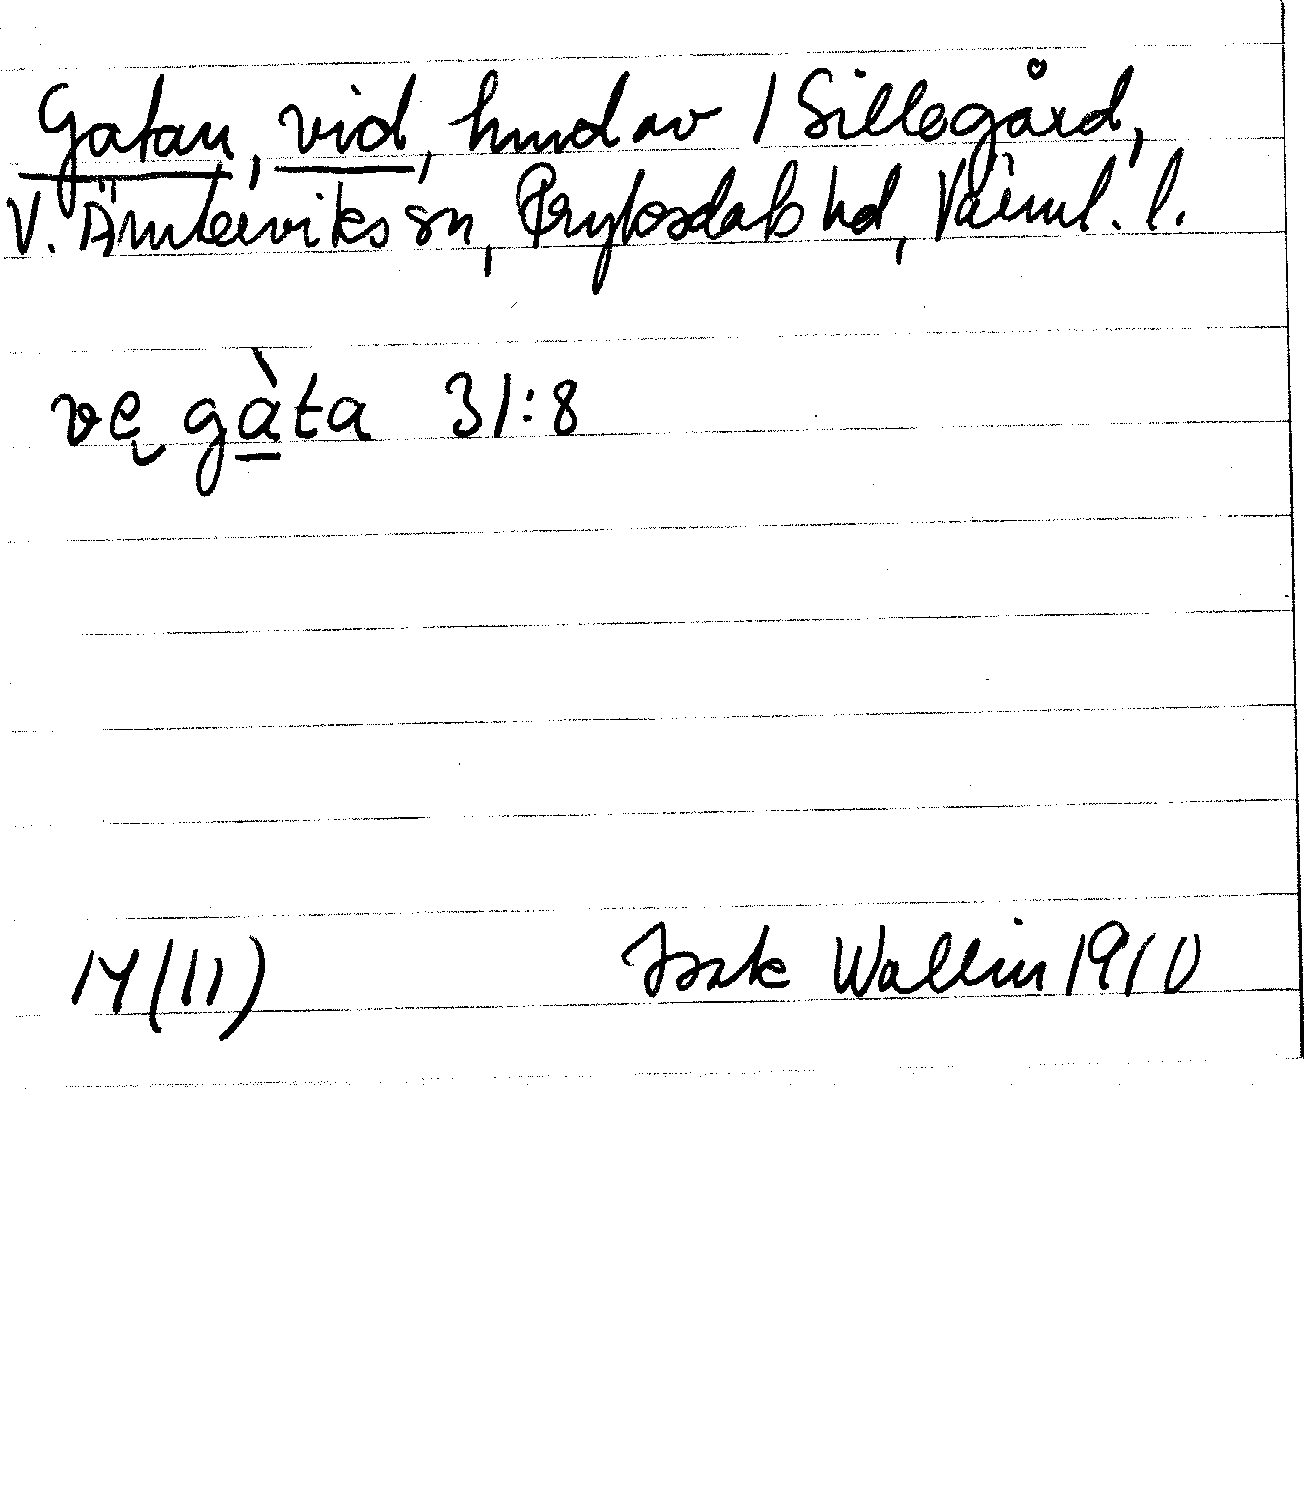 Gatan, vid, hmd av 1 Sillegård,
V. Ämterviks sn, Fryksdals hd, Värml. l.
vę gàta 31:8
14(11)
Isak Wallin 1910